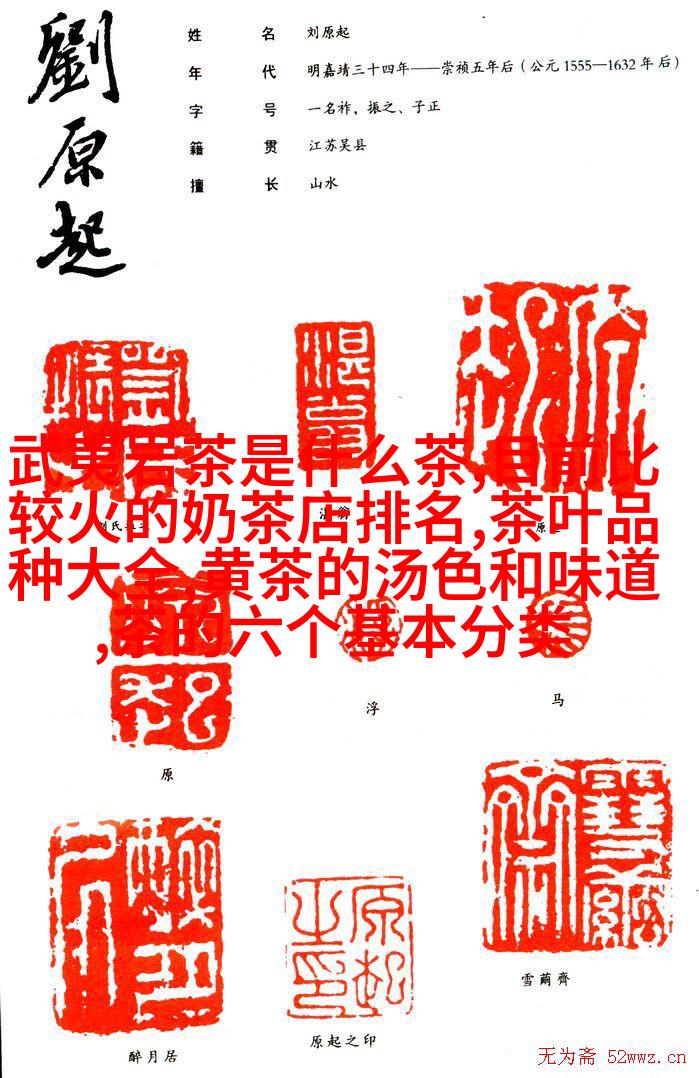 劉原起
姓名 刘原起
年代 明嘉靖三十四年——崇祯五年后(公元1555—1632年后)
字号 一名祚,振之、子正
籍贯 江苏吴县
擅长 山水
武夷岩茶是什么茶,目前比
较火的奶茶店排名,茶叶品
种大全,黄茶的汤色和味道
,茶的六个基本分类
浮
马
原
雪蔄齊
醉月居
原起之印
无为斋 52wwz.cn